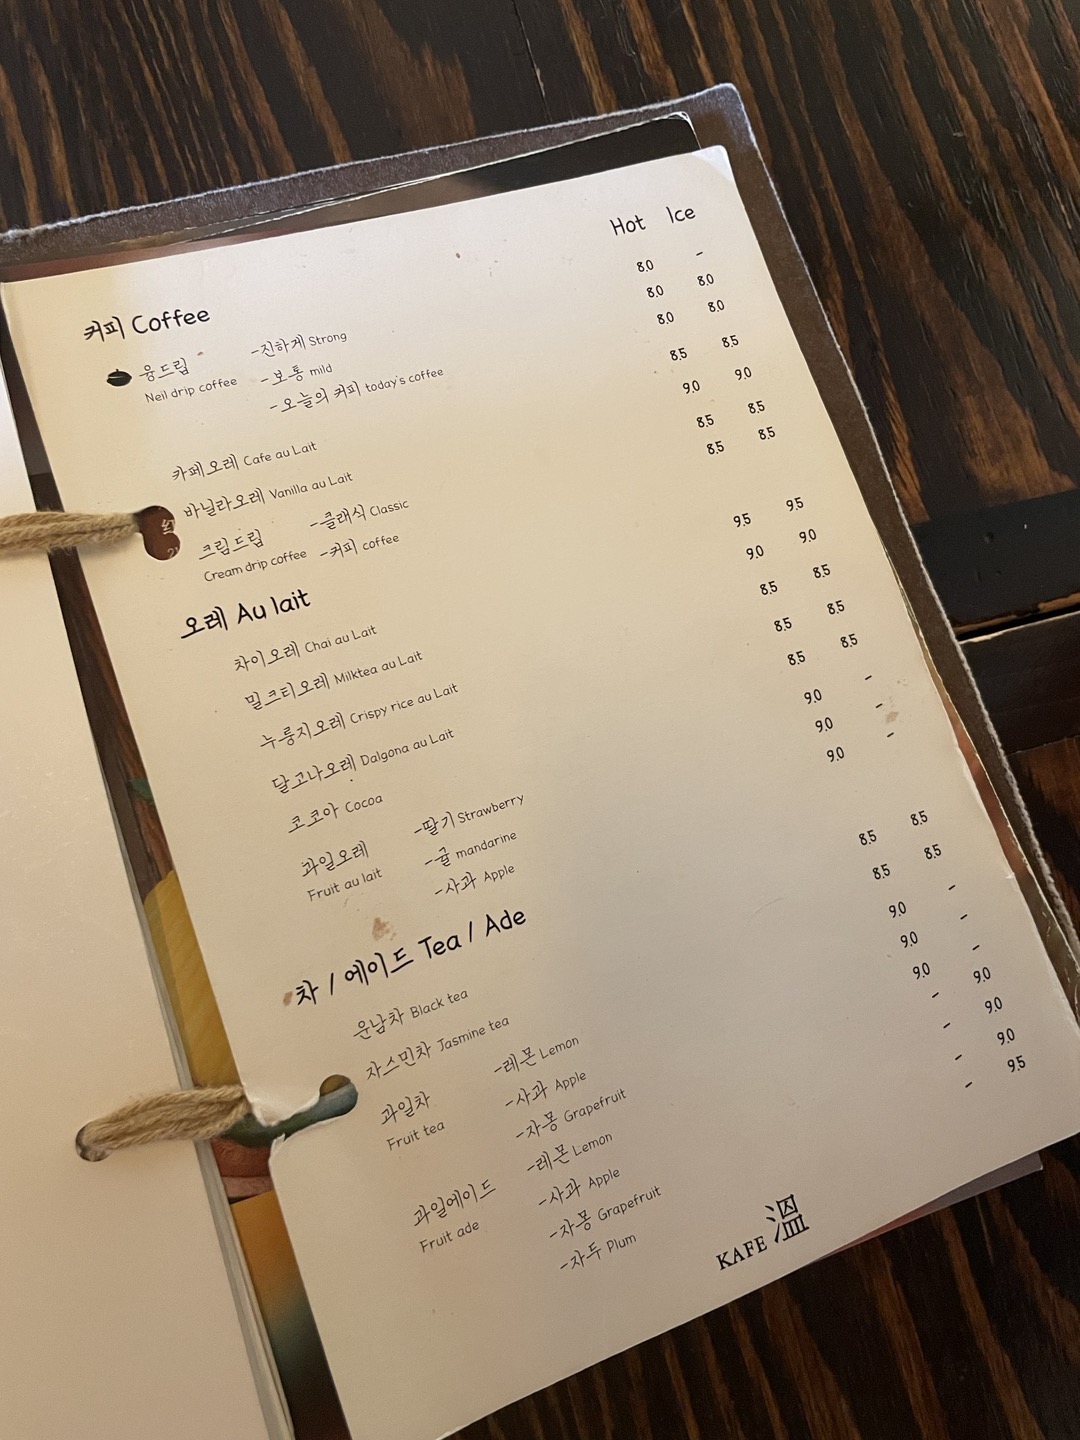 Hot Ice
커피 Coffee
융드립 -진하게 Strong 8.0 -
Neil drip coffee -보통 mild 8.0 8.0
-오늘의 커피 today's coffee 8.0 8.0
카페오레 Cafe au Lait 8.5 8.5
바닐라오레 Vanilla au Lait 9.0 9.0
크림드립 -클래식 Classic 8.5 8.5
Cream drip coffee -커피 coffee 8.5 8.5
오레 Au lait
차이오레 Chai au Lait 9.5 9.5
밀크티오레 Milktea au Lait 9.0 9.0
누룽지오레 Crispy rice au Lait 8.5 8.5
달고나오레 Dalgona au Lait 8.5 8.5
코코아 Cocoa 8.5 8.5
과일오레 -딸기 Strawberry 9.0 -
Fruit au lait -귤 mandarine 9.0 -
-사과 Apple 9.0 -
차 / 에이드 Tea / Ade
운남차 Black tea 8.5 8.5
자스민차 Jasmine tea 8.5 8.5
과일차 -레몬 Lemon 9.0 -
Fruit tea -사과 Apple 9.0 -
-자몽 Grapefruit 9.0 -
-레몬 Lemon - 9.0
과일에이드 -사과 Apple - 9.0
Fruit ade -자몽 Grapefruit - 9.0
-자두 Plum - 9.5
KAFE 溫